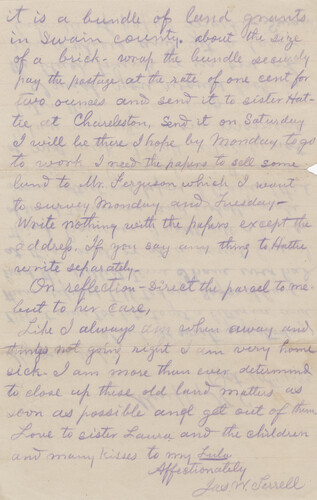 it is a bundle of land grants
in Swain county. about the size
of a brick - wrap the bundle securely
pay the postage at the rate of one cent for
two ounces and send it to sister Hat-
tie at Charleston, Send it on Saturday
I will be there I hope by Monday to go
to work I need the papers to sell some
land to Mr. Ferguson which I want
to survey Monday and Tuesday-
Write nothing with the papers except the
address. If you say any thing to Hattie
write separately-
On reflection - direct the parcel to me-
but to her care,
Like I always am when away and
things not going right I am very home
sick - I am more than ever determined
to close up these old land matters as
soon as possible and get out of them
Love to sister Laura and the children
and many kisses to my
Affectionately
Jas. W. Terrell